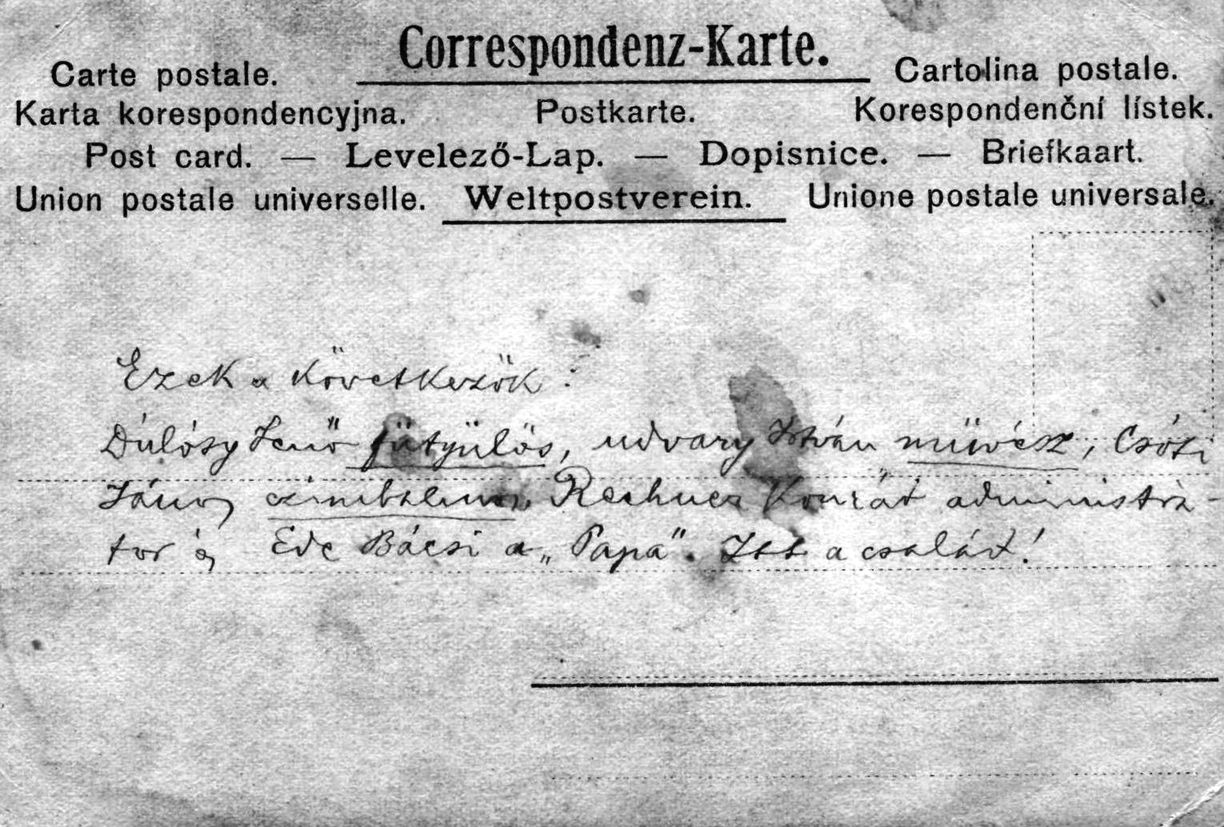 Correspondenz-Karte.
Carte postale. Cartolina postale.
Karta korespondencyjna. Postkarte. Korespondenční lístek.
Post card. — Levelező-Lap. — Dopisnice. — Briefkaart.
Union postale universelle. Weltpostverein. Unione postale universale.
Ezek a következők:
Dúlósy Jenő fütyülős, udvary István müvész, Csóti
János Konrát administra-
tor és Ede Bácsi a „Papa". Itt a család!